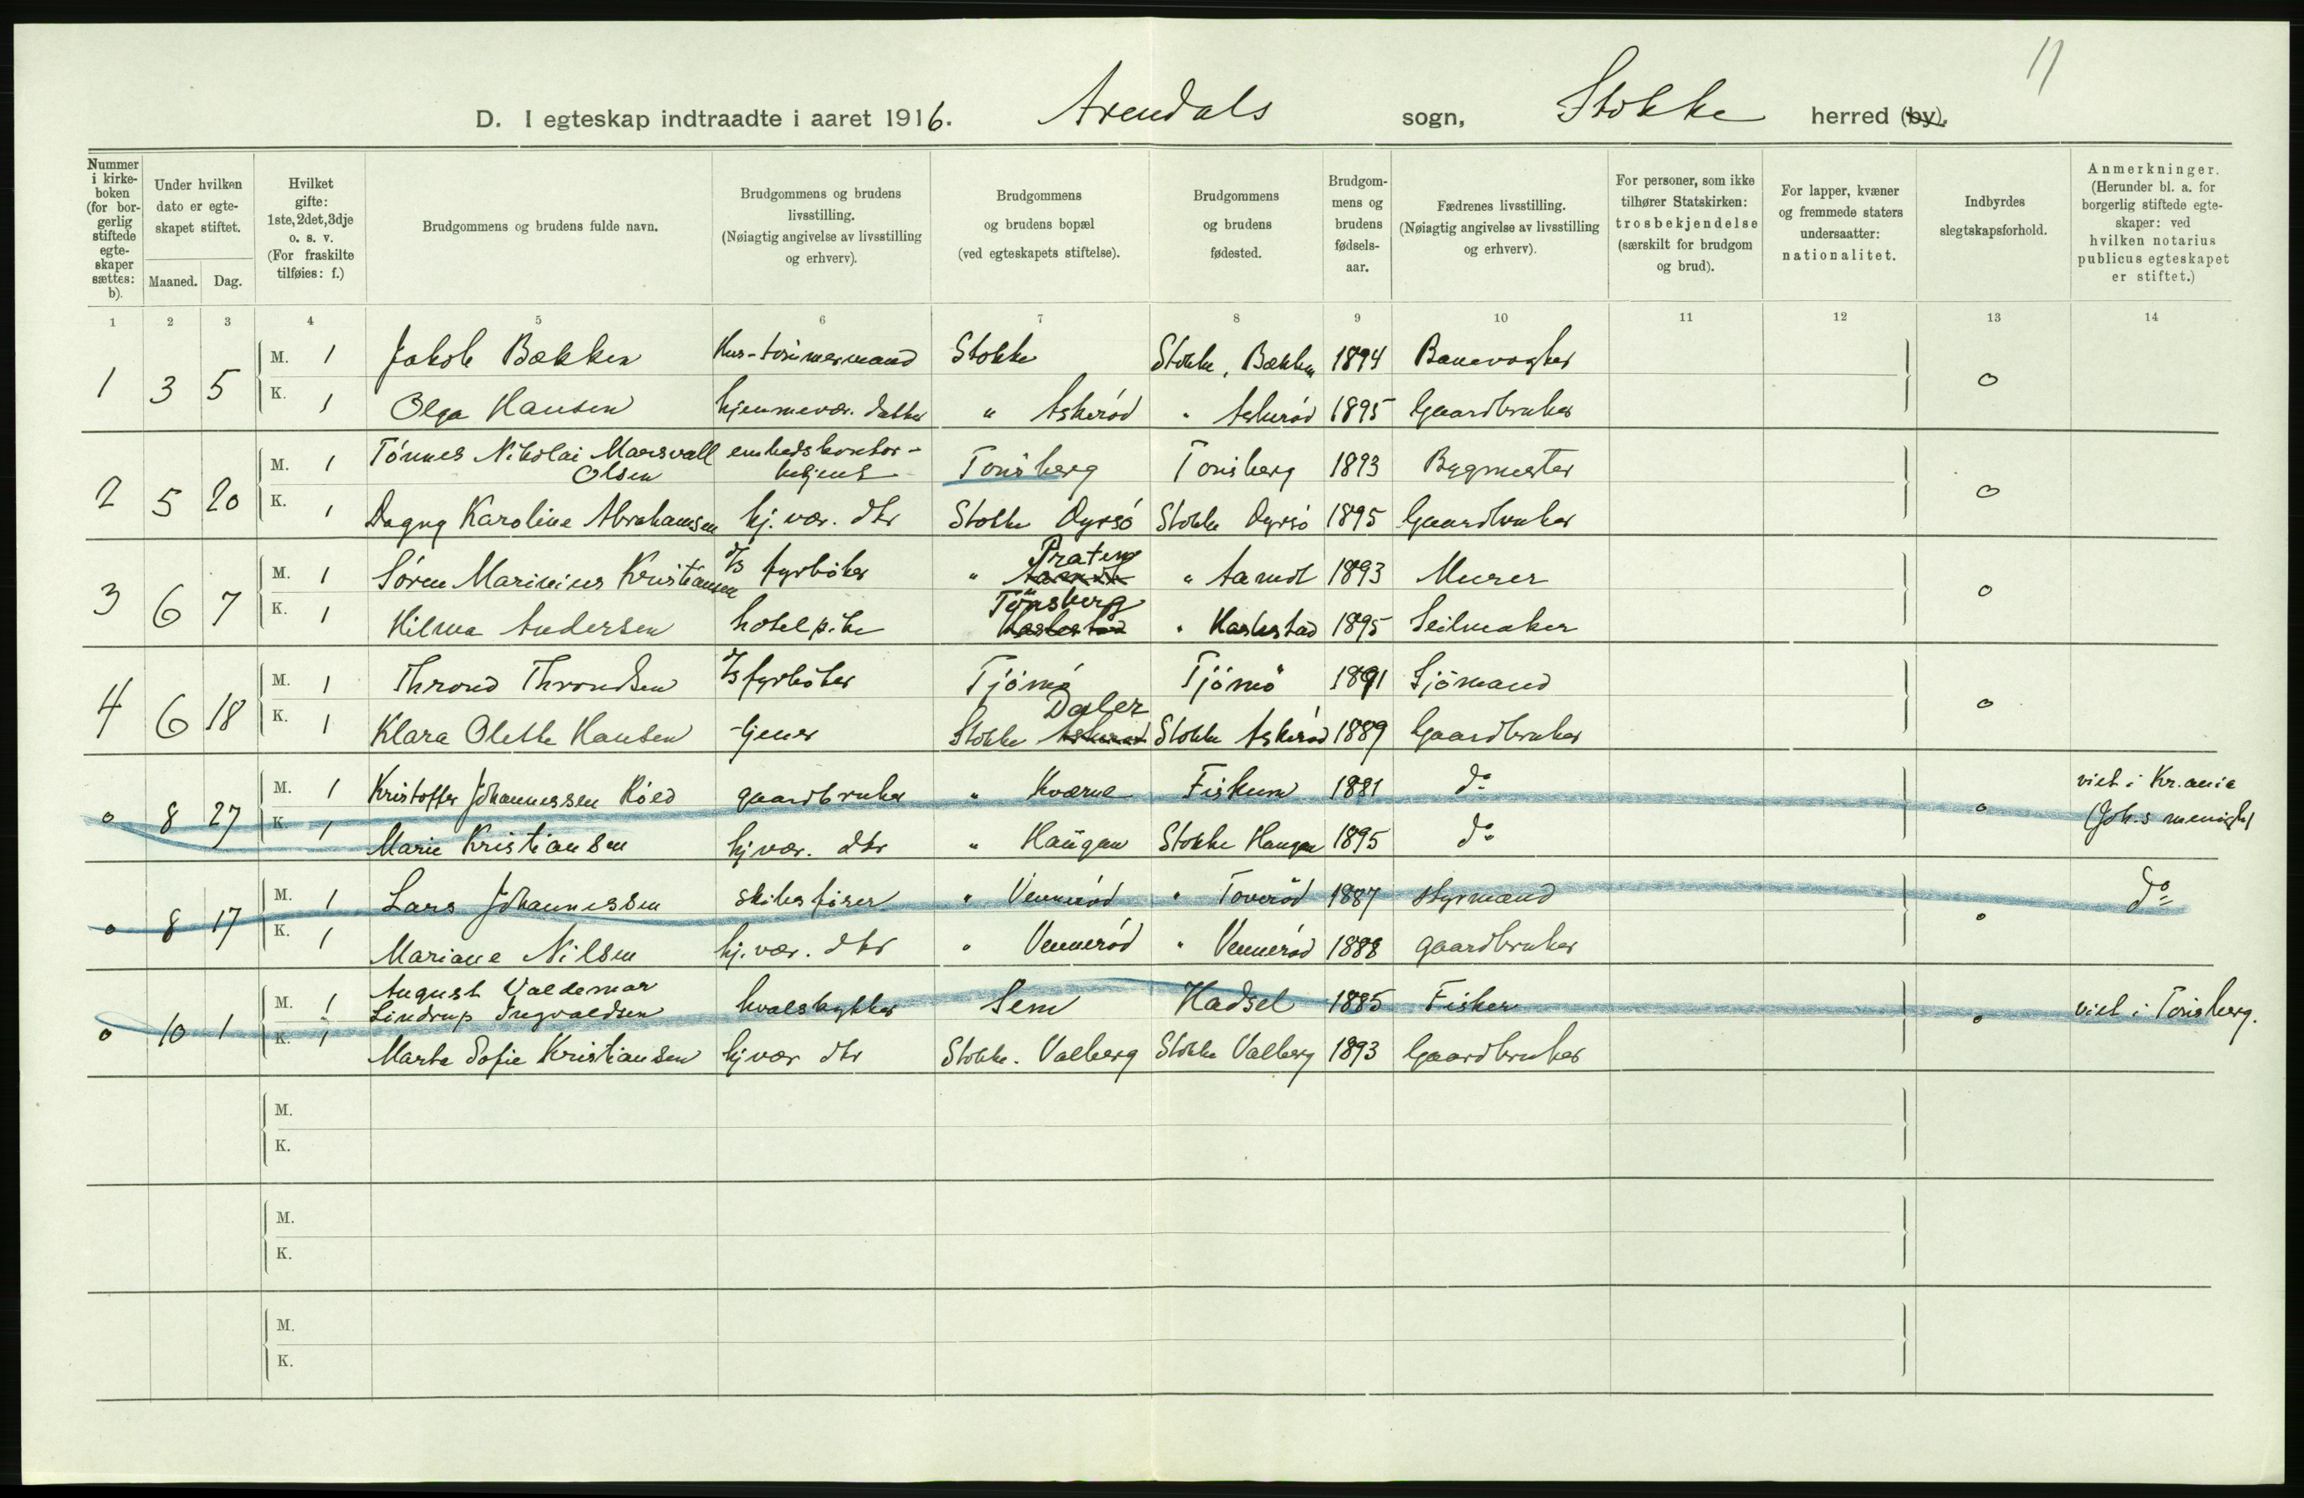 11
D. I egteskap indtraadte i aaret 1916. Arendals sogn, Stokke herred (by).
Nummer i kirke-boken (for bor-gerlig stiftede egte-skaper sættes: b).
Under hvilken dato er egte-skapet stiftet.
Maaned. Dag.
Hvilket gifte: 1ste, 2det, 3dje o. s. v. (For fraskilte tilføies: f.)
Brudgommens og brudens fulde navn.
Brudgommens og brudens livsstilling. (Nøiagtig angivelse av livsstilling og erhverv).
Brudgommens og brudens bopæl (ved egteskapets stiftelse).
Brudgommens og brudens fødested.
Brudgom-mens og brudens fødsels-aar.
Fædrenes livsstilling. (Nøiagtig angivelse av livsstilling og erhverv).
For personer, som ikke tilhører Statskirken: trosbekjendelse (særskilt for brudgom og brud).
For lapper, kvæner og fremmede staters undersaatter: nationalitet.
Indbyrdes slegtskapsforhold.
Anmerkninger. (Herunder bl. a. for borgerlig stiftede egte-skaper: ved hvilken notarius publicus egteskapet er stiftet.)
1 2 3 4 5 6 7 8 9 10 11 12 13 14
1 3 5 M. 1 Jakob Bækken Hus-tømmermand Stokke Stokke, Bækken 1894 Banevogter 0
K. 1 Olga Hansen hjemmevær. datter " Askerød " Askerød 1895 Gaardbruker
2 5 20 M. 1 Tønnes Nikolai Marsvall Olsen embedskontor-betjent Tönsberg Tönsberg 1893 Bygmester 0
K. 1 Dagny Karoline Abrahamsen hj. vær. dtr Stokke Oyrsö Stokke Oyrsö 1895 Gaardbruker
3 6 7 M. 1 Søren Marinius Kristiansen d/s fyrbøter " Prateng " Aamot 1893 Murer 0
K. 1 Hilma Andersen hotelpike Tønsberg " Haslestad 1895 Seilmaker
4 6 18 M. 1 Thrond Throndsen d/s fyrbøter Tjömö Tjömö 1891 Sjömand 0
K. 1 Klara Olette Hansen tjener Stokke Daler Stokke Askerød 1889 Gaardbruker
0 8 27 M. 1 Kristoffer Johannessen Röed gaardbruker " Kværne Fiskum 1881 do 0 viet i Kr.ania
K. 1 Marie Kristiansen hj vær. dtr " Haugan Stokke Haugan 1895 do (Joh.s menigh)
0 8 17 M. 1 Lars Johannessen skibsfører " Vennerød " Toverød 1887 Styrmand 0 do
K. 1 Mariane Nilsen hj. vær. dtr " Vennerød " Vennerød 1888 gaardbruker
0 10 1 M. 1 August Valdemar Lindrup Ingvaldsen hvalskytter Sem Hadsel 1885 Fisker 0 viet i Tönsberg.
K. 1 Marte Sofie Kristiansen hj vær dtr Stokke. Valberg Stokke Valberg 1893 Gaardbruker
M.
K.
M.
K.
M.
K.